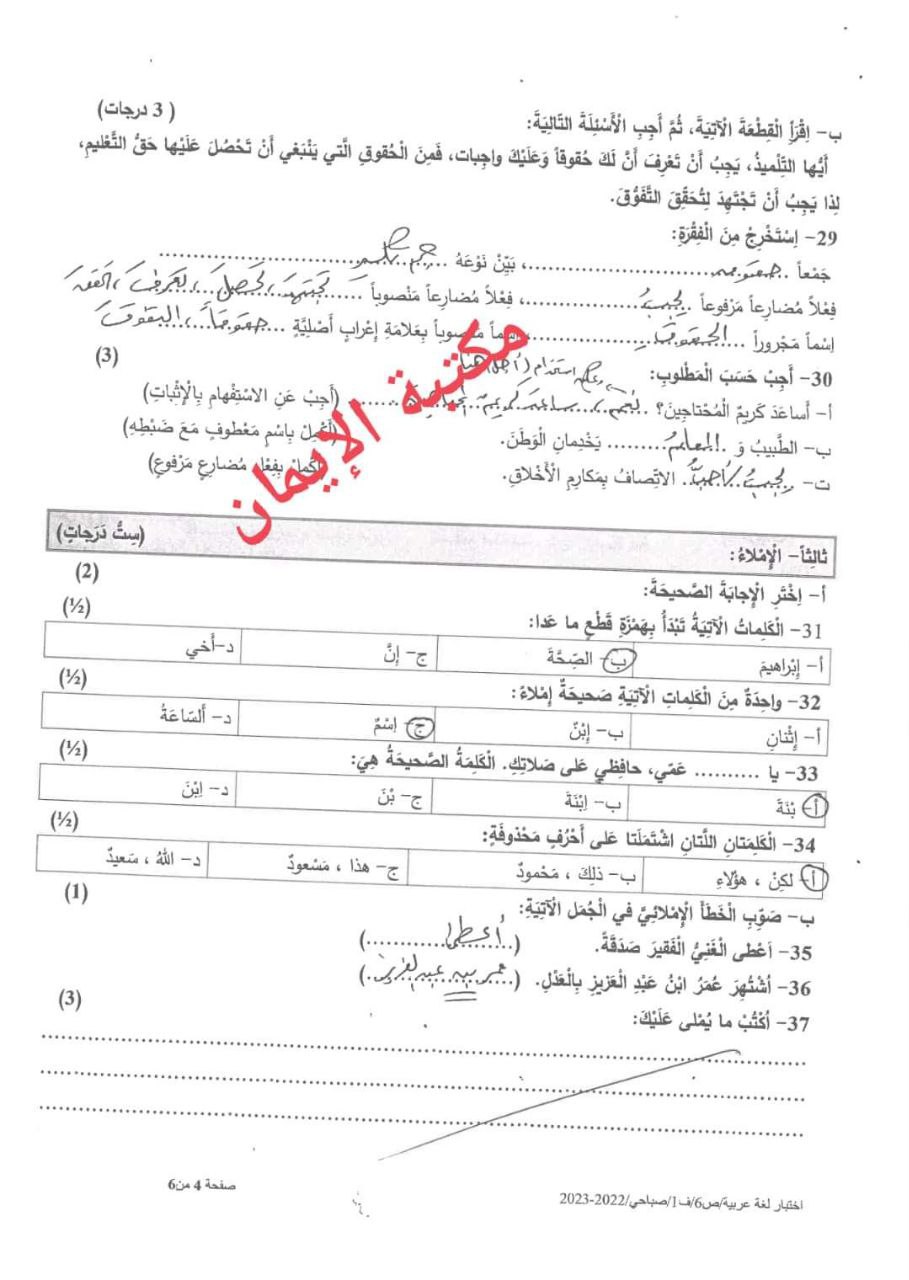 ب- اِقْرَأِ الْقِطْعَةَ الْآتِيَةَ، ثُمَّ أَجِبِ الْأَسْئِلَةَ التَّالِيَةَ: ( 3 درجات)
أَيُّها التِّلْميذُ، يَجِبُ أَنْ تَعْرِفَ أَنَّ لَكَ حُقوقاً وَعَلَيْكَ واجِبات، فَمِنَ الْحُقوقِ الَّتي يَنْبَغي أَنْ تَحْصُلَ عَلَيْها حَقُّ التَّعْليمِ،
لِذا يَجِبُ أَنْ تَجْتَهِدَ لِتُحَقِّقَ التَّفَوُّقَ.
29- اِسْتَخْرِجْ مِنَ الْفِقْرَةِ:
جَمْعاً ..حقوق..........................، بَيِّنْ نَوْعَهُ ..جمع تكسير..........................
فِعْلاً مُضارِعاً مَرْفوعاً ..يجبُ..............، فِعْلاً مُضارِعاً مَنْصوباً ........تجتهدَ، تحصلَ، تعرفَ،
اِسْماً مَجْروراً ...الحقوقِ...................، اِسْماً مَنْصوباً بِعَلامَةِ إِعْرابٍ أَصْلِيَّةٍ ...حقوقاً، التفوقَ
30- أَجِبْ حَسَبَ الْمَطْلوبِ: (3)
أ- أَساعَدَ كَريمٌ الْمُحْتاجينَ؟ ..نعم، ساعد كريمٌ المحتاجين.. (أَجِبْ عَنِ الاسْتِفْهامِ بِالْإِثْباتِ)
ب- الطَّبيبُ وَ ..المعلمُ......... يَخْدِمانِ الْوَطَنَ. (أَكْمِلْ بِاسْمٍ مَعْطوفٍ مَعَ ضَبْطِهِ)
ت- يجبُ / أحبُّ.. الاتِّصافُ بِمَكارِمِ الْأَخْلاقِ. (أَكْمِلْ بِفِعْلٍ مُضارِعٍ مَرْفوعٍ)
مكتبة الإيمان
ثالِثاً- الْإِمْلاءُ: (سِتُّ دَرَجاتٍ)
أ- اِخْتَرِ الْإِجابَةَ الصَّحيحَةَ: (2)
31- الْكَلِماتُ الْآتِيَةُ تَبْدَأُ بِهَمْزَةِ قَطْعٍ ما عَدا: (½)
أ- إِبْراهيمَ ب- الصِّحَّةَ ج- إِنَّ د- أَخي
32- واحِدَةٌ مِنَ الْكَلِماتِ الْآتِيَةِ صَحيحَةٌ إِمْلاءً: (½)
أ- إِثْنانِ ب- إِبْنٌ ج- اِسْمٌ د- أَلسّاعَةُ
33- يا .......... عَمّي، حافِظي عَلى صَلاتِكِ. الْكَلِمَةُ الصَّحيحَةُ هِيَ: (½)
أ- بْنَةَ ب- اِبْنَةَ ج- بْنَ د- اِبْنَ
34- الْكَلِمَتانِ اللَّتانِ اشْتَمَلَتا عَلى أَحْرُفٍ مَحْذوفَةٍ: (½)
أ- لكِنْ ، هؤُلاءِ ب- ذلِكَ ، مَحْمودٌ ج- هذا ، مَسْعودٌ د- اللهُ ، سَعيدٌ
ب- صَوِّبِ الْخَطَأَ الْإِمْلائِيَّ في الْجُمَلِ الْآتِيَةِ: (1)
35- اَعْطى الْغَنِيُّ الْفَقيرَ صَدَقَةً. (........أعطى........)
36- أُشْتُهِرَ عُمَرُ ابْنُ عَبْدِ الْعَزيزِ بِالْعَدْلِ. (......عمر بن عبدالعزيز..)
37- اُكْتُبْ ما يُمْلى عَلَيْكَ: (3)
اختبار لغة عربية/ص6/ف1/صباحي/2022-2023 صفحة 4 من6